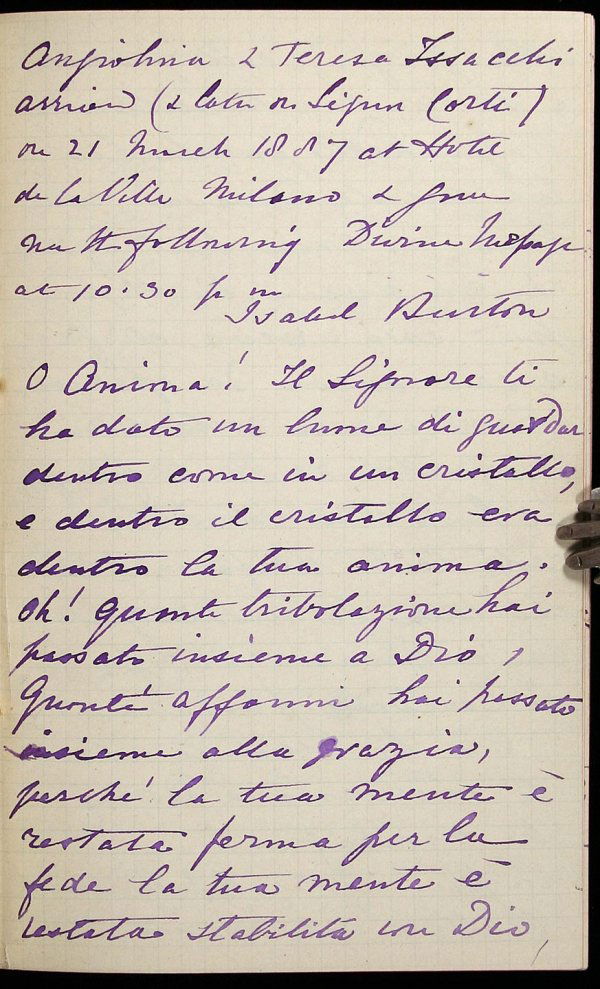 Angiolina & Teresa Issacchi
arrived (& later on Signor Corti)
on 21 March 1887 at Hotel
de la Ville Milano & gave
me the following Divine Message
at 10.30 p m
Isabel Burton
O Anima! Il Signore ti
ha dato un lume di guardar
dentro come in un cristallo,
e dentro il cristallo era
dentro la tua anima.
Oh! quante tribolazione hai
passato insieme a Dio,
Quanti affanni hai passato
insieme alla grazia,
perché la tua mente è
restata ferma per la
fede la tua mente è
restata stabilita con Dio,